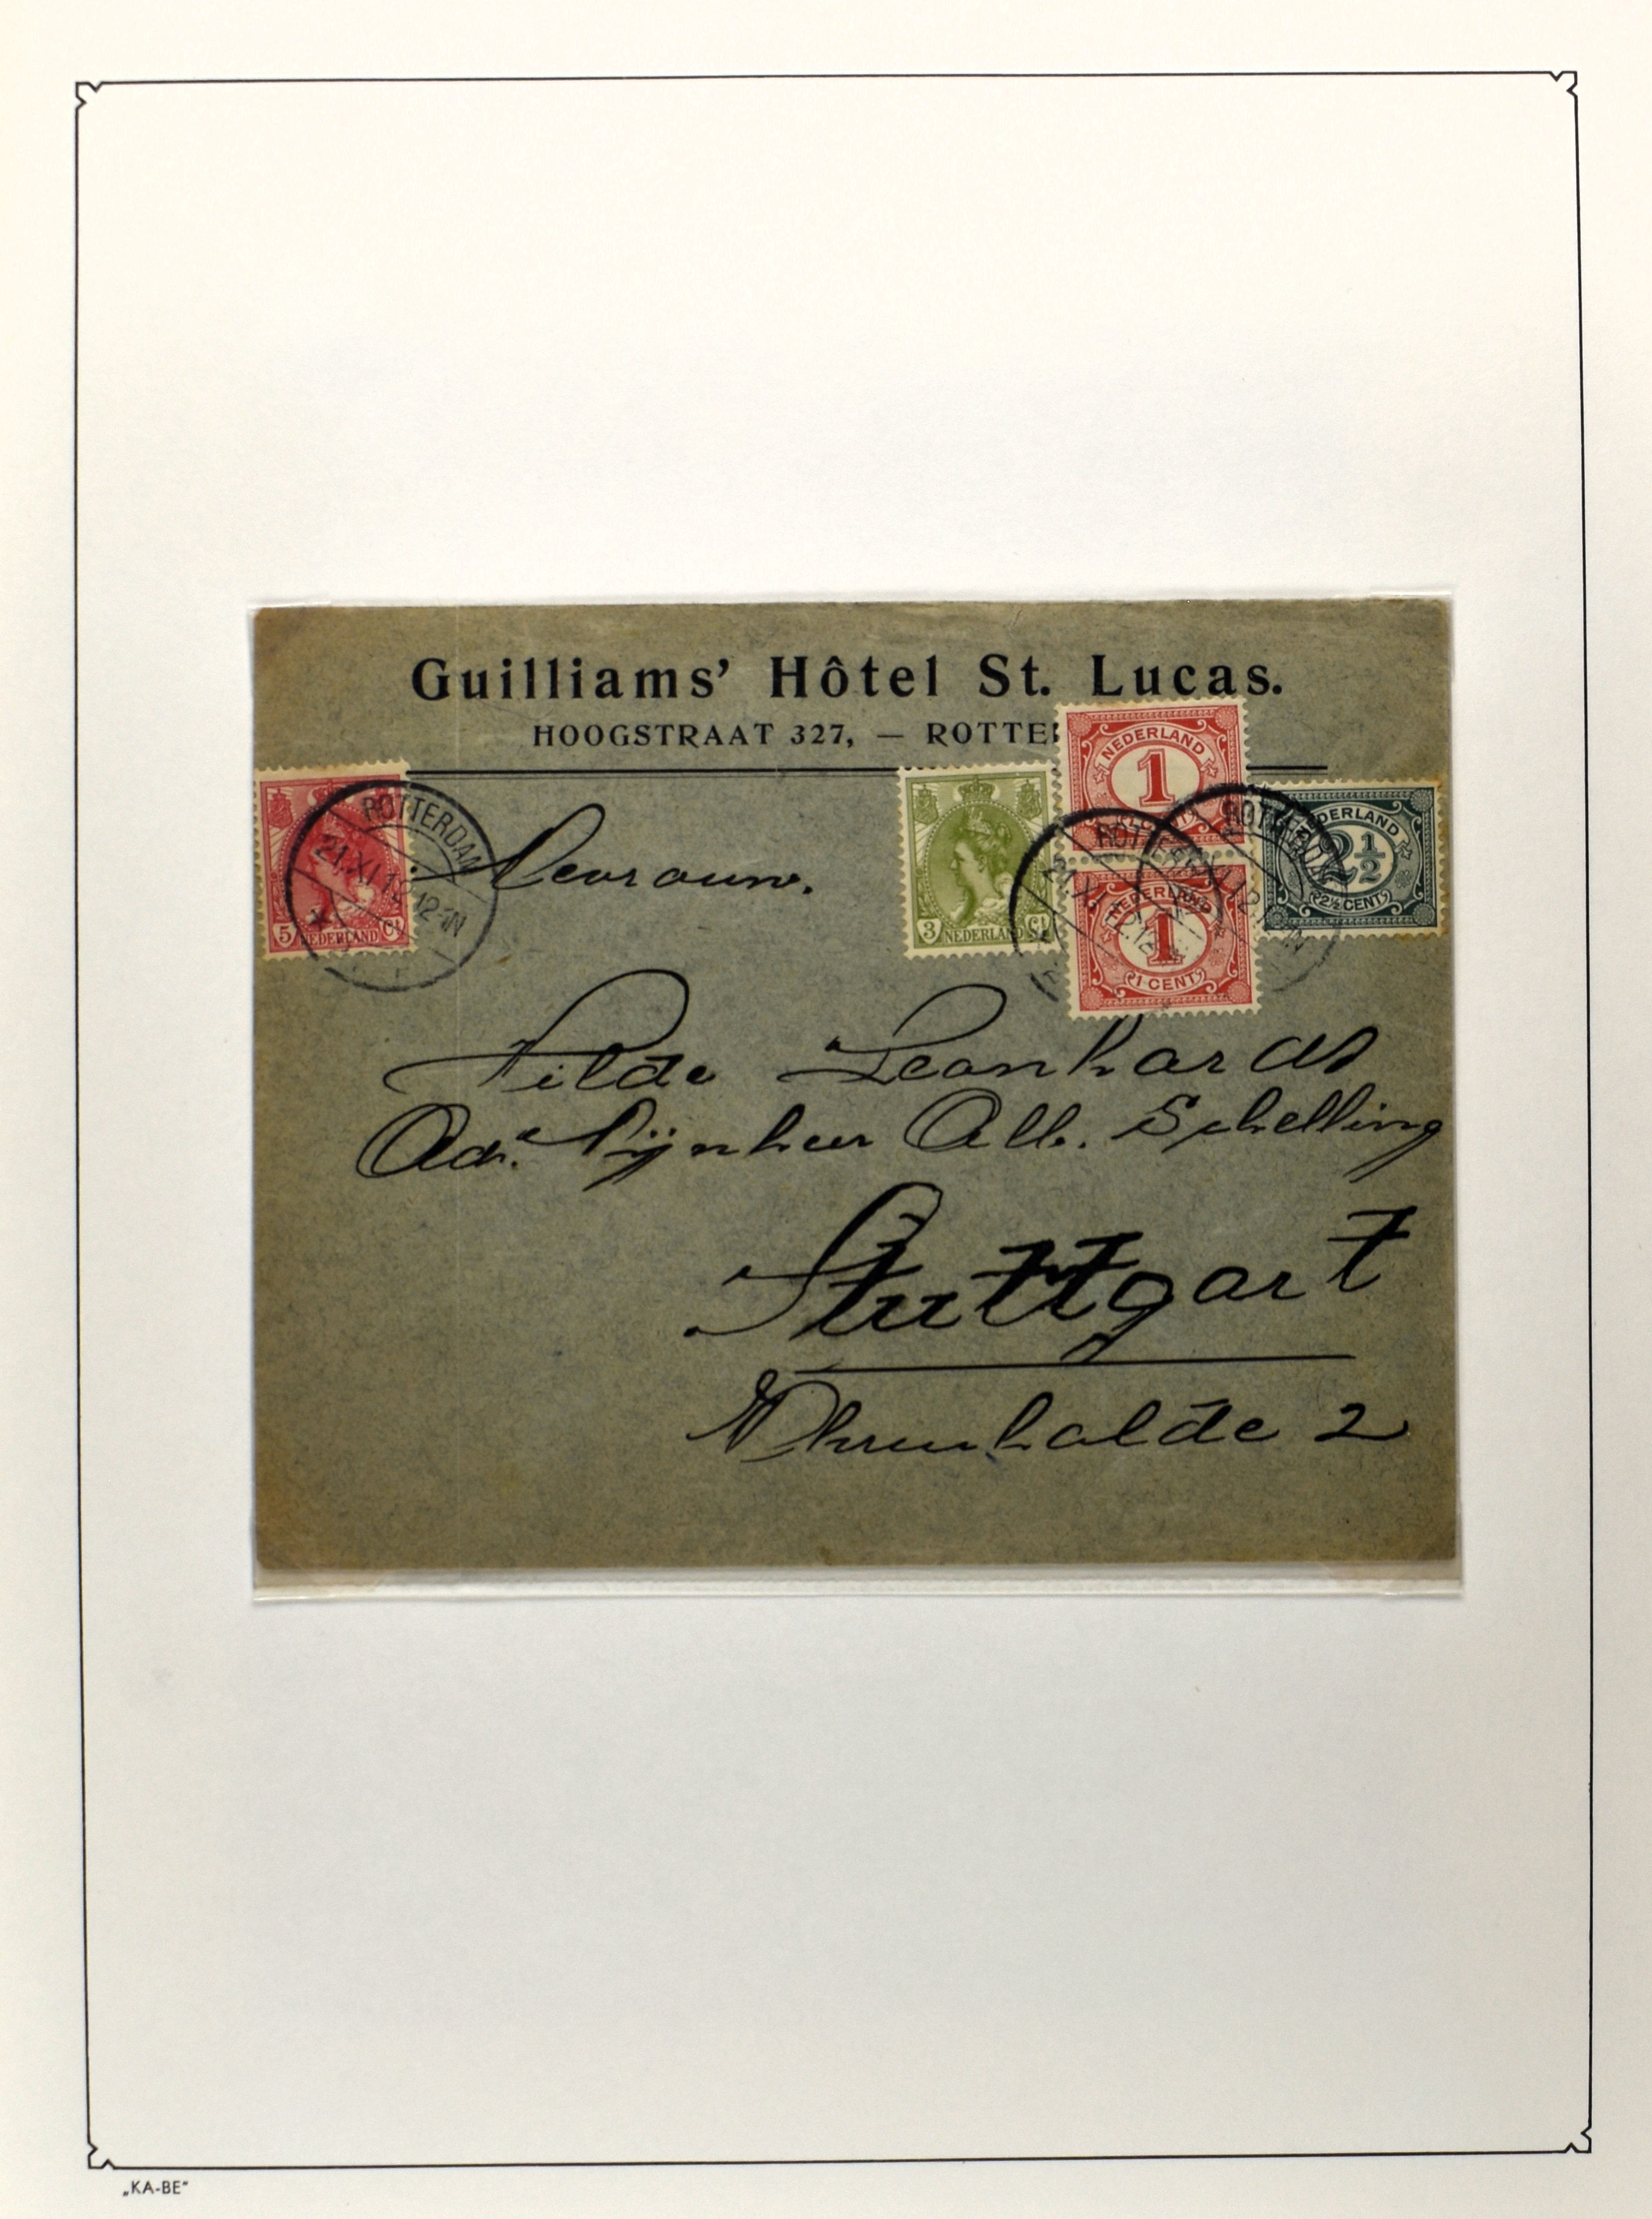 Guilliams' Hôtel St. Lucas.
HOOGSTRAAT 327, — ROTTE
NEDERLAND
1
ROTTERDAM
21.XI.12.12-1N
5 NEDERLAND Ct
Mevrouw.
3 NEDERLAND Ct
ROTTERDAM
NEDERLAND
1
1 CENT
ROTTERDAM
NEDERLAND
2½
2½ CENT
Hilde Leonhardt
Adr. Mijnheer Alb. Schelling
Stuttgart
2
„KA-BE"